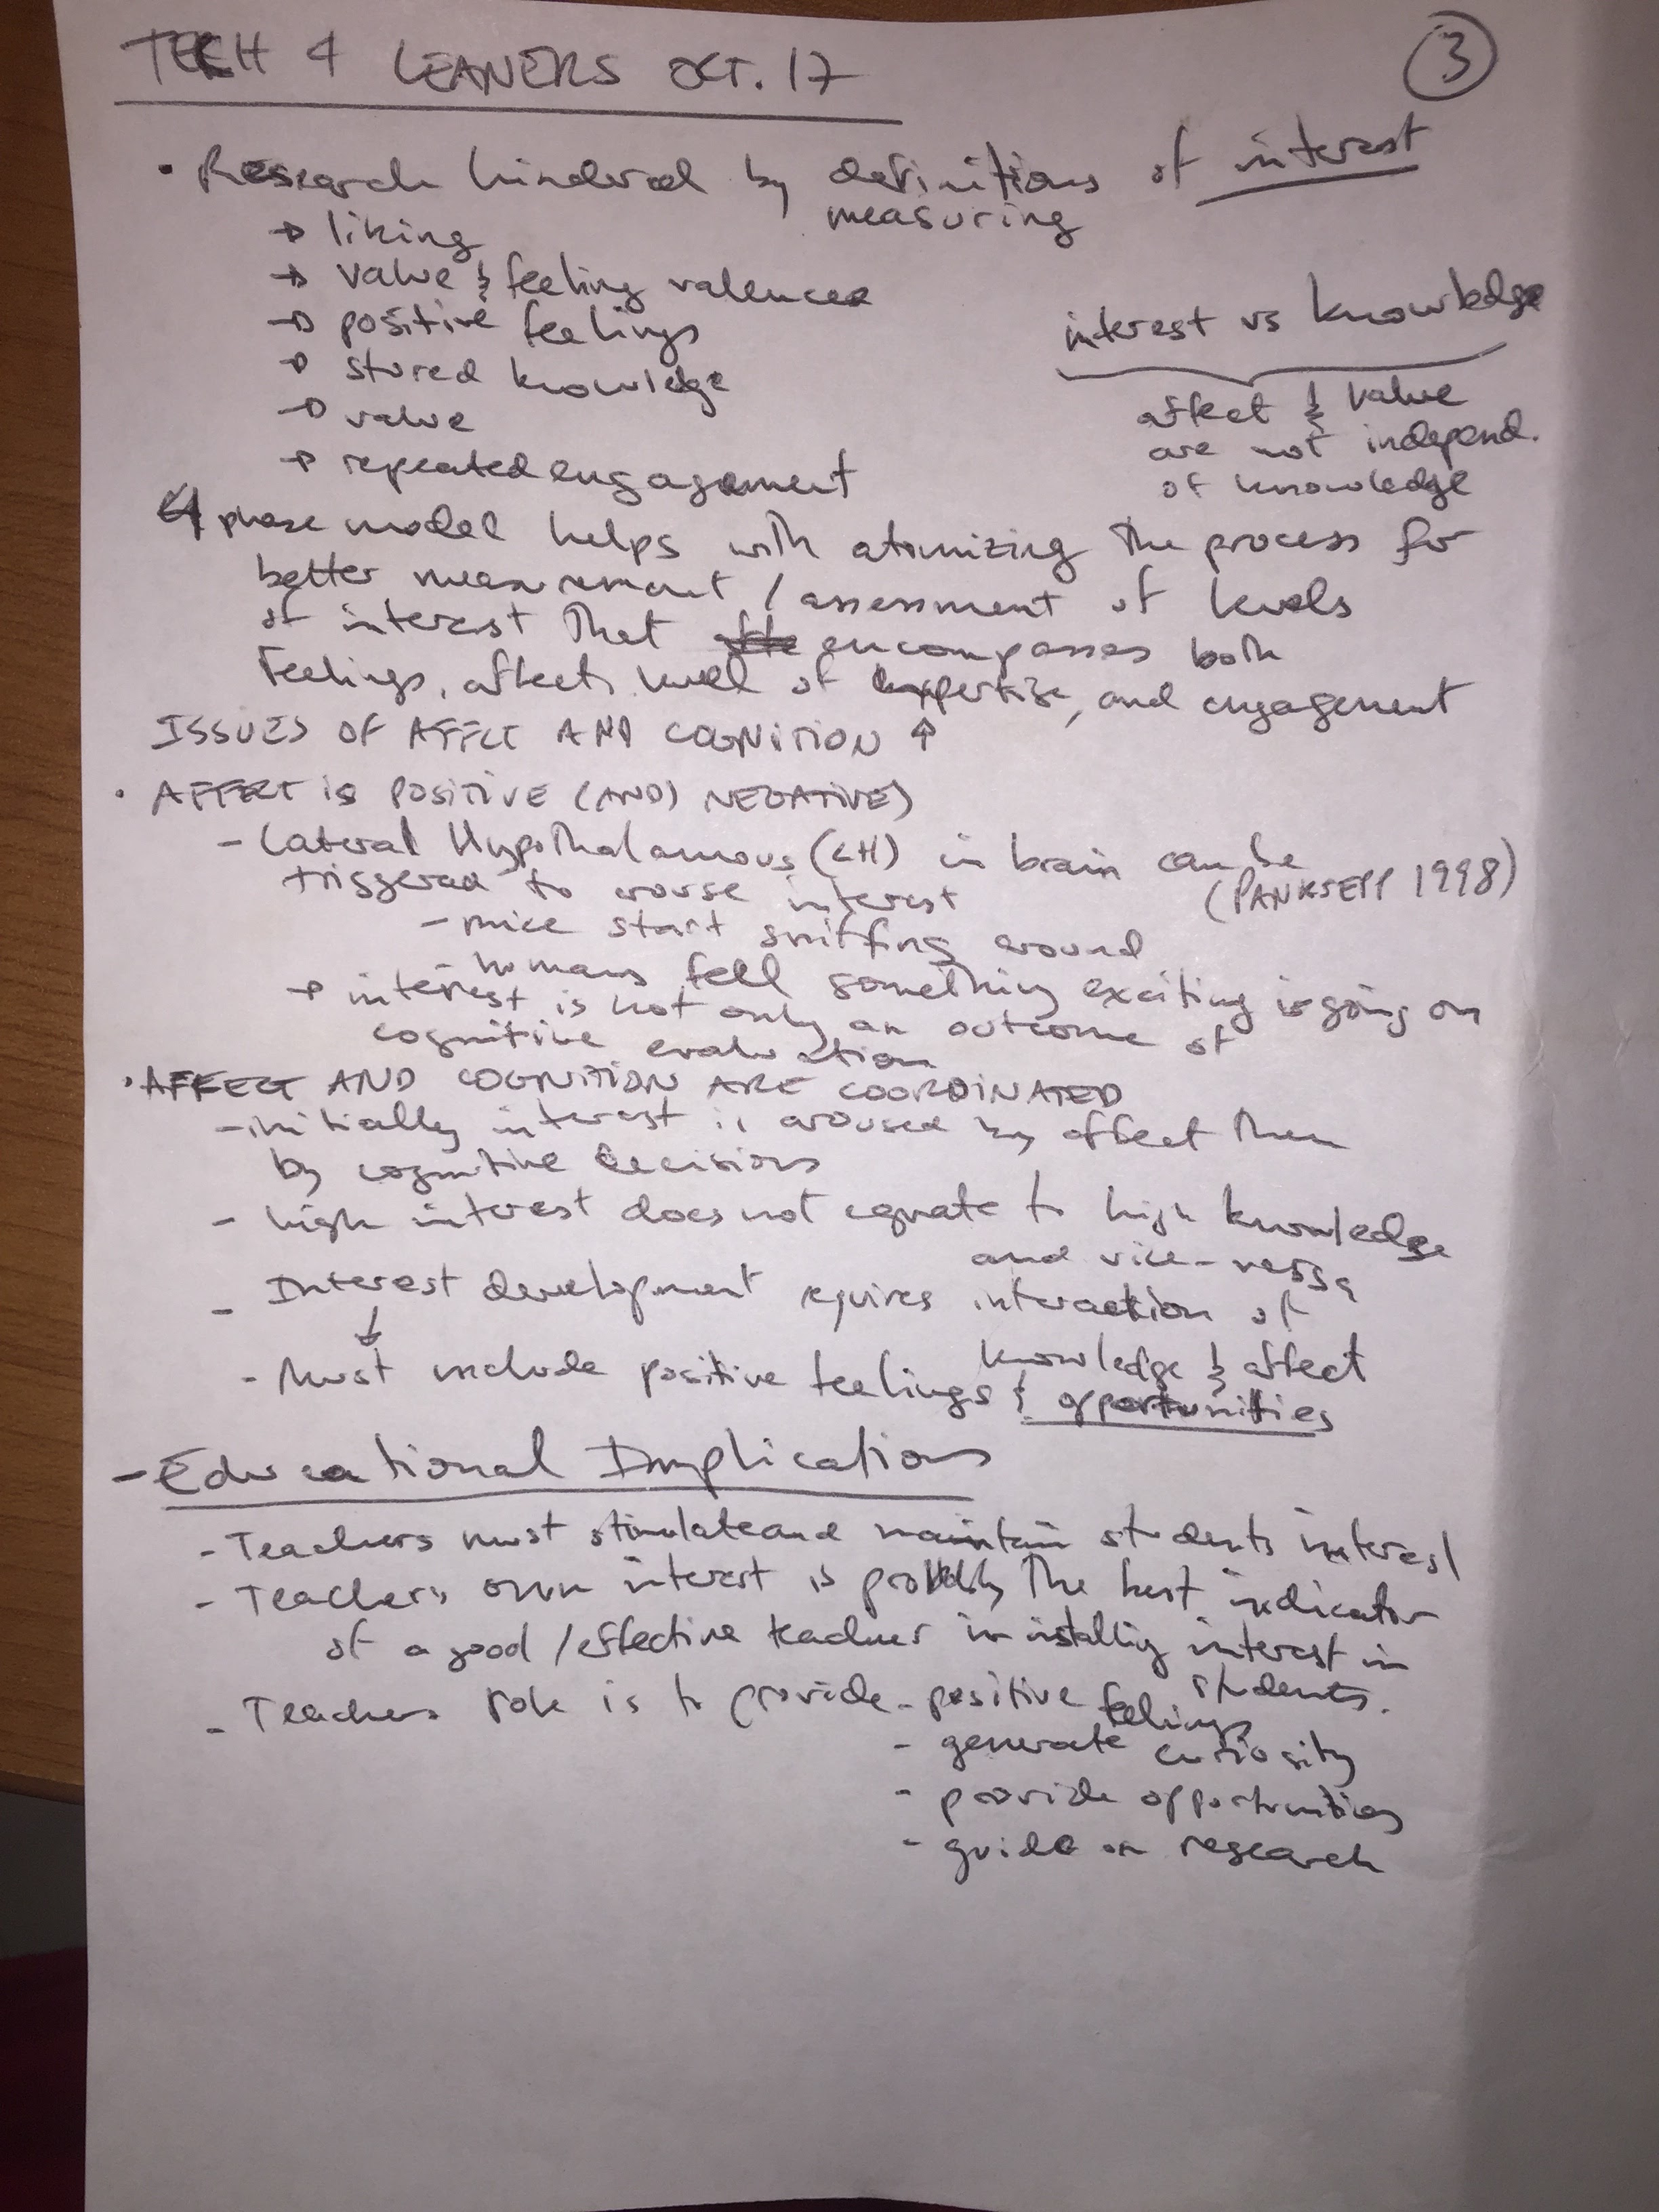 TECH 4 LEANERS OCT. 17
3
• Research hindered by definitions of interest
measuring
→ liking
→ value & feeling valences
→ positive feelings
→ stored knowledge
→ value
→ repeated engagement
interest vs knowledge
affect & value
are not independ.
of knowledge
4 phase model helps with atomizing the process for
better measurement / assessment of levels
of interest that encompasses both
feelings, affects, level of expertise, and engagement
ISSUES OF AFFECT AND COGNITION ↑
• AFFECT is POSITIVE (AND) NEGATIVE)
- Lateral Hypothalamous (LH) in brain can be
triggered to arouse interest
(PANKSEPP 1998)
- mice start sniffing around
- humans fell something exciting is going on
→ interest is not only an outcome of
cognitive evaluation
• AFFECT AND COGNITION ARE COORDINATED
- initially interest is aroused by affect then
by cognitive decisions
- high interest does not equate to high knowledge
and vice-versa
- Interest development requires interaction of
knowledge & affect
↓
- Must include positive feelings & opportunities
- Educational Implications
- Teachers must stimulate and maintain students interest
- Teachers own interest is probably the best indicator
of a good / effective teacher in installing interest in
students.
- Teachers role is to provide - positive feelings
- generate curiosity
- provide opportunities
- guide on research